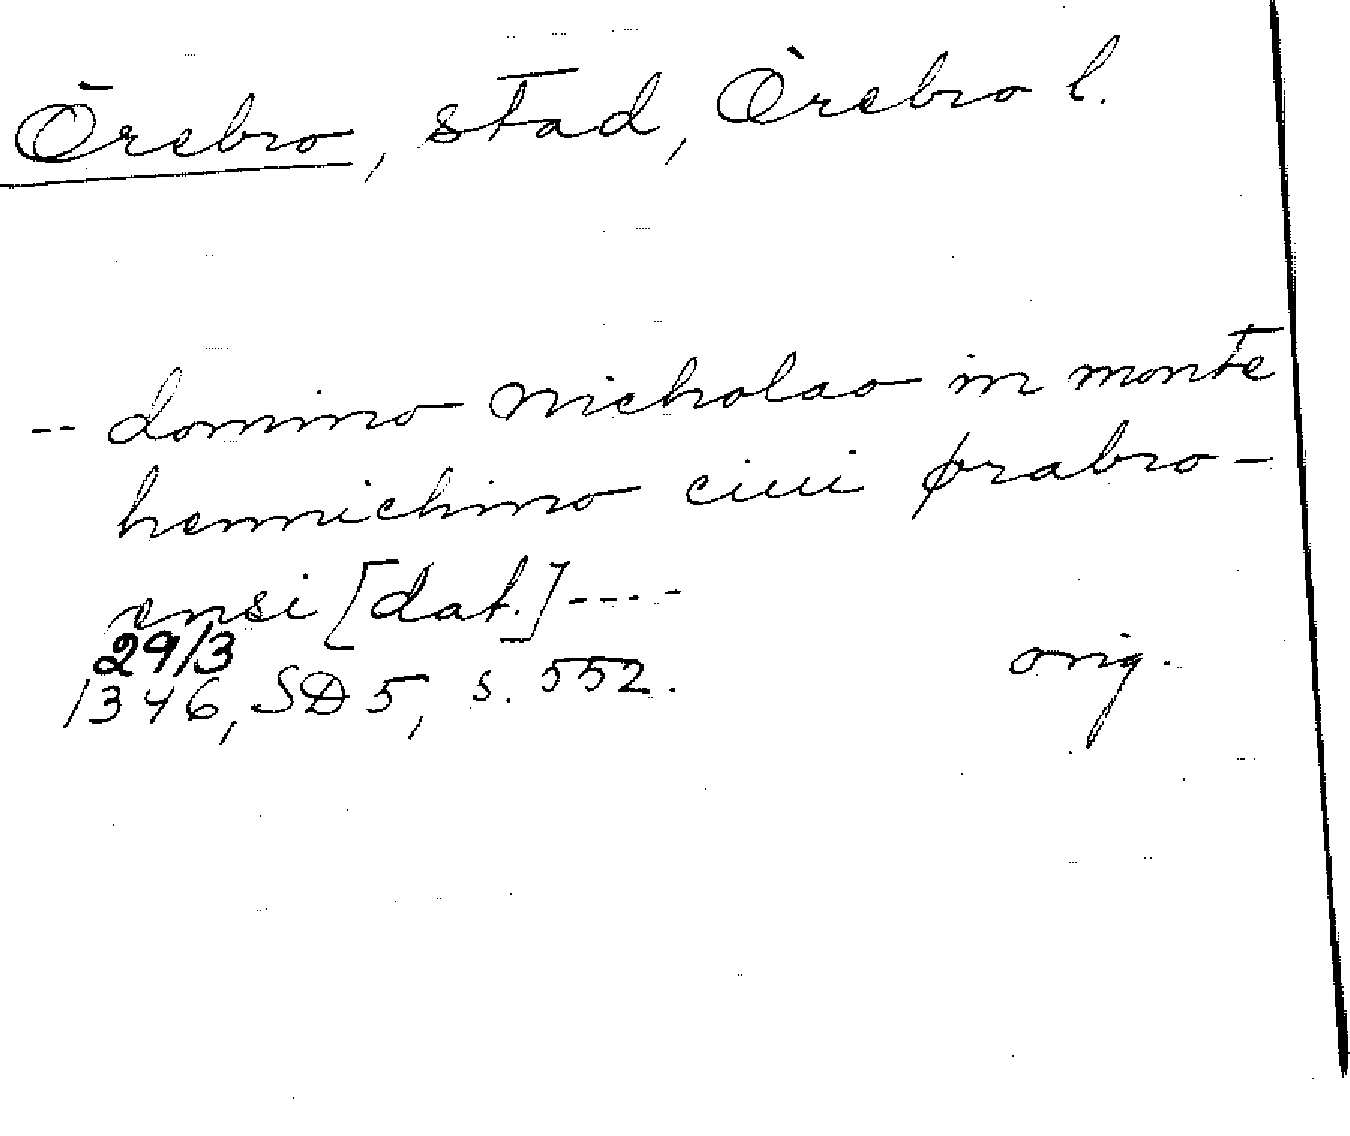 Örebro, stad, Örebro l.
-- domino Nicholao in monte
hennichino ciui ørabro-
ensi [dat.]----
29/3
1346, SD 5, s. 552. orig.